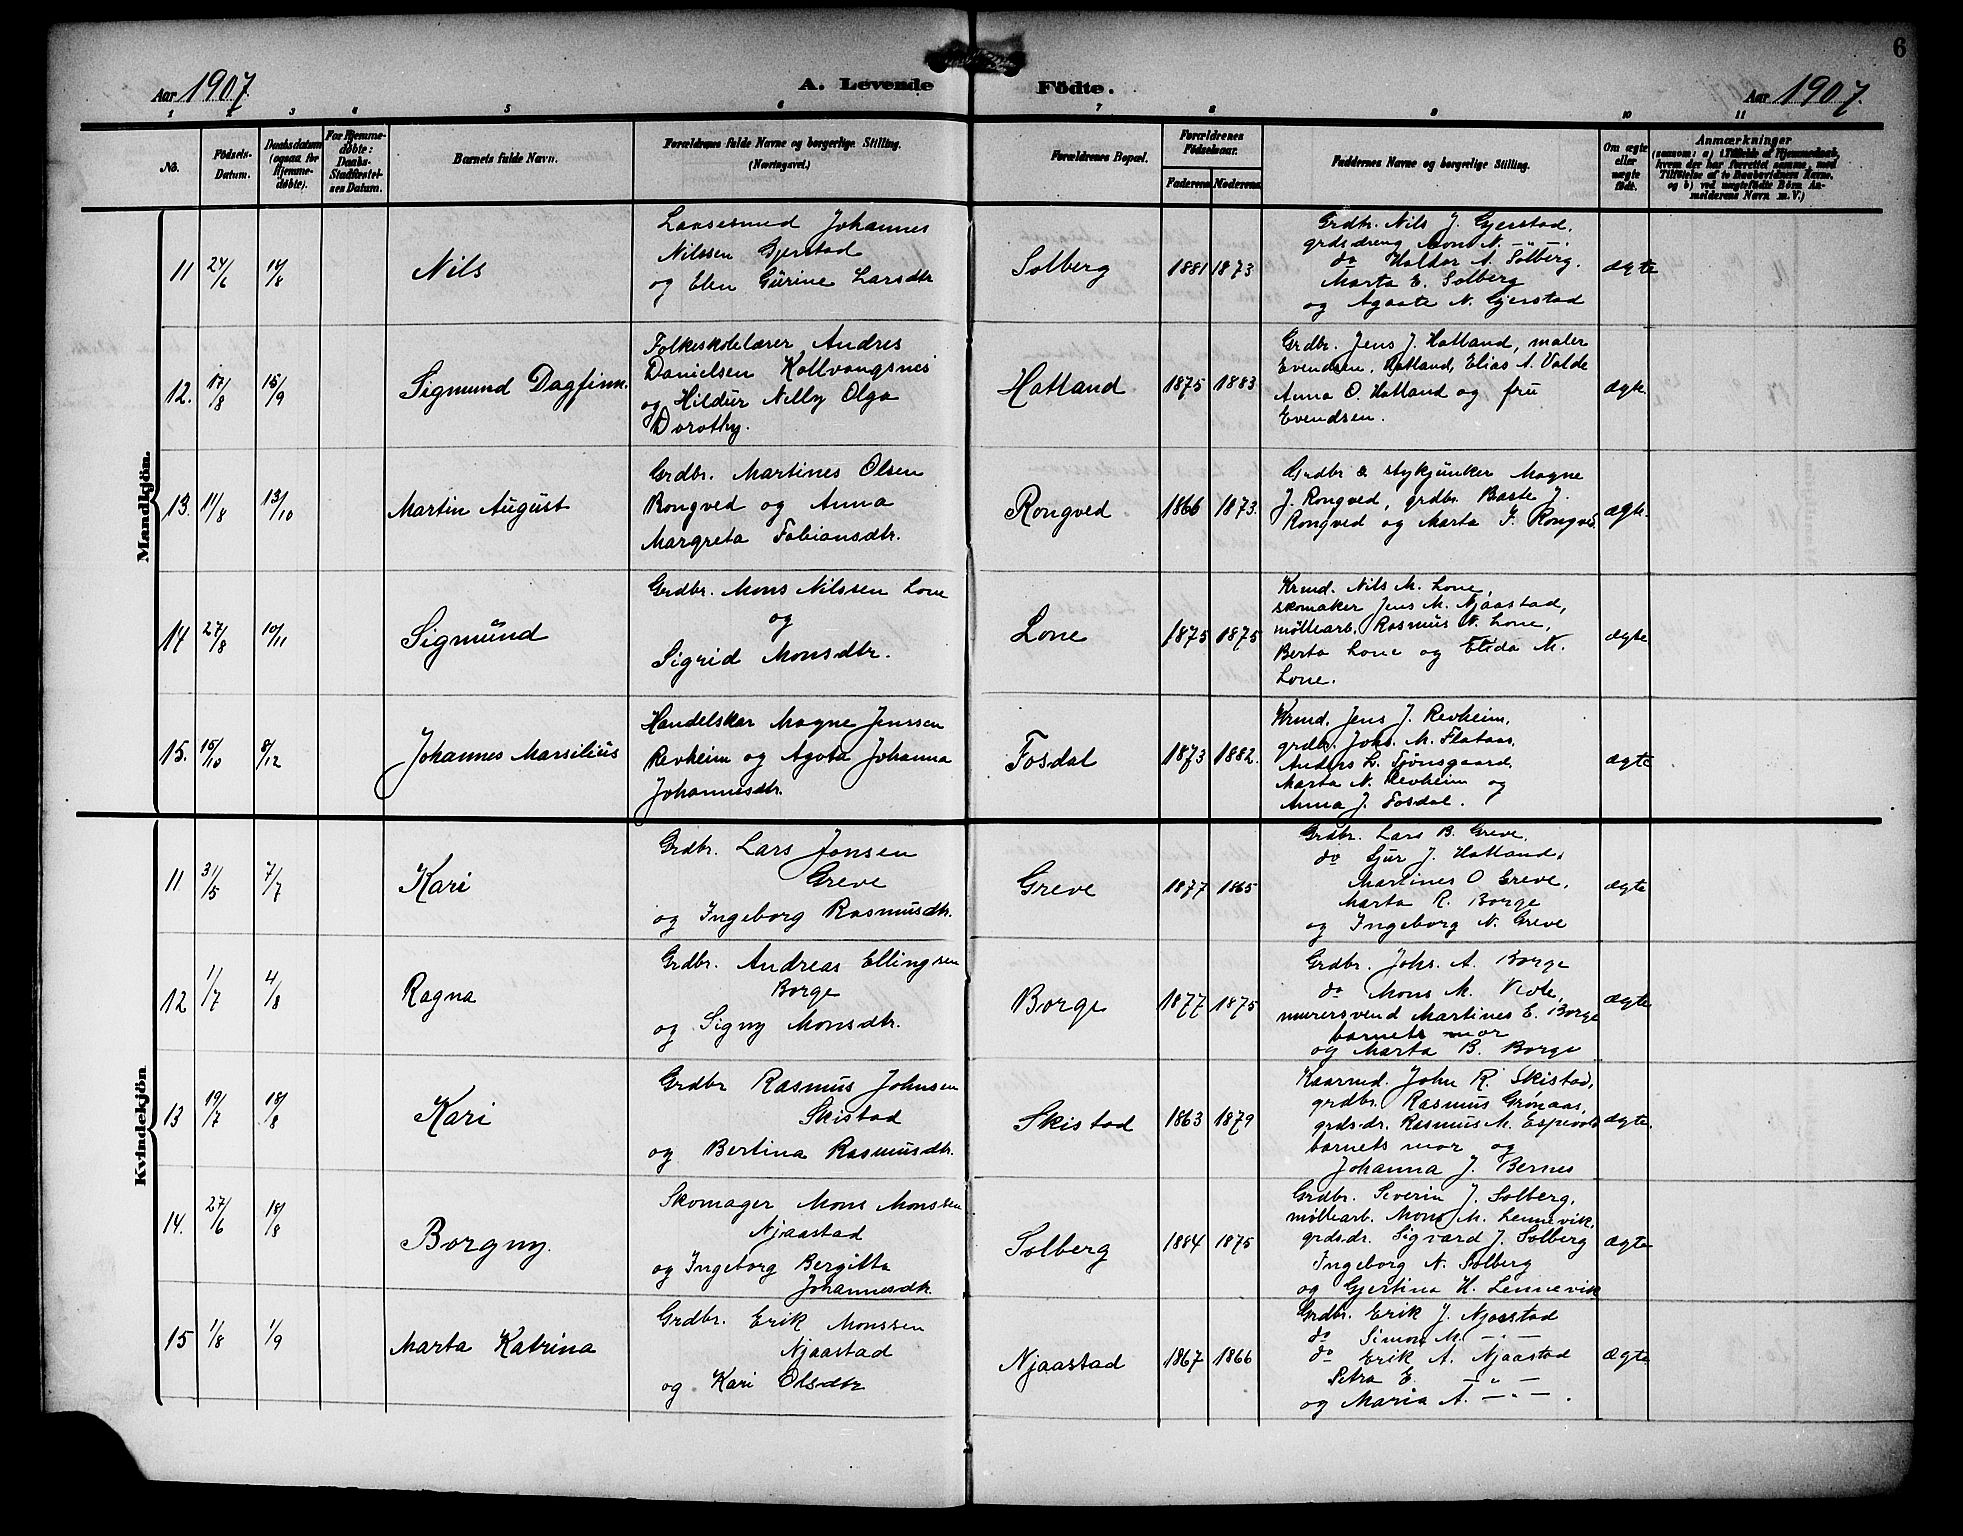 6
Aar 1907.
A. Levende Födte.
Aar 1907.
1 2 3 4 5 6 7 8 9 10 11
No.
Födsels-Datum.
Daabsdatum (ogsaa for Hjemme-døbte).
For Hjemme-døbte: Daabs-Stadfæstel-ses Datum.
Barnets fulde Navn.
Forældrenes fulde Navne og borgerlige Stilling. (Næringsvei.)
Forældrenes Bopæl.
Forældrenes Födselsaar.
Faderens Moderens
Faddernes Navne og borgerlige Stilling.
Om ægte eller uægte født.
Anmærkninger
(saasom: a) i Tilfælde af Hjemmedaab,
hvem der har forrettet samme, med
Tilföielse af to Daabsvidners Navne,
og b) ved uægtefödte Börn An-
melderens Navn m. V.)
Mandkjön.
11 24/6 10/8 Nils
Laasesmed Johannes
Nilssen Gjerstad
og Elen Gurine Larsdtr
Solberg 1881 1873
Grdbr. Nils J. Gjerstad,
grdsdreng Mons N. — " —.
do Haldor A. Solberg.
Marta E. Solberg
og Agaate N. Gjerstad
ægte
12. 17/8 15/9 Sigmund Dagfinn.
Folkeskolelærer Andres
Danielsen Kollvangsnes
og Hildur Nelly Olga
Dorothy.
Hatland 1875 1883
Grdbr. Jens J. Hatland, maler
Evendsen, Hatland, Elias A. Valde
Anna O. Hatland og fru
Evendsen.
ægte.
13. 11/8 13/10 Martin August
Grdbr. Martines Olsen
Rongved og Anna
Margreta Fabiansdtr.
Rongved 1866 1873.
Grdbr & stykjunker Magne
J. Rongved, grdbr. Baste J.
Rongved og Marta J. Rongved.
ægte.
14 27/8 10/11 Sigmund
Grdbr. Mons Nilssen Lone
og
Sigrid Monsdtr.
Lone 1875 1875
Krmd. Nils M. Lone,
skomaker Jens M. Njaastad,
møllearb. Rasmus N. Lone,
Berta Lone og Elida M.
Lone.
ægte
15. 15/10 8/12 Johannes Marsilius
Handelskar Magne Jenssen
Revheim og Agota Johanna
Johannesdtr.
Fosdal 1873 1882.
Krmd. Jens J. Revheim,
grdbr. Johs. M. Flataas,
Anders L. Tjönsgaard,
Marta N. Revheim og
Anna J. Fosdal.
ægte
Kvindekjön
11 31/5 7/7 Kari
Grdbr. Lars Jonsen
Greve
og Ingeborg Rasmusdtr.
Greve 1877 1865
Grdbr. Lars B. Greve,
do Sjur J. Hatland,
Martines O Greve,
Marta R. Borge
og Ingeborg N. Greve
ægte
12 1/7 4/8 Ragna
Grdbr. Andreas Ellingsen
Borge
og Signy Monsdtr.
Borge 1877 1875
Grdbr. Johs. A. Borge
do Mons M. Viole,
murersvend Martines E. Borge
barnets mor
og Marta B. Borge
ægte
13 19/7 18/8 Kari
Grdbr Rasmus Johnsen
Skistad
og Bertina Rasmusdtr.
Skistad 1863 1879
Kaarmd. John R. Skistad,
grdbr. Rasmus Grönaas,
grds.dr. Rasmus M. Espevold
barnets mor og
Johanna J. Bernes
ægte.
14. 27/6 18/8 Borgny.
Skomager Mons Monssen
Njaastad
og Ingeborg Bergitta
Johannesdtr.
Solberg 1884 1875
Grdbr. Severin J. Solberg,
møllearb. Mons M. Lennevik,
grdsdr. Sigvard J. Solberg
Ingeborg N. Solberg
og Gjertina H. Lennevik
ægte
15 1/8 1/9 Marta Katrina
Grdbr. Erik Monssen
Njaastad
og Kari Olsdtr
Njaastad 1867 1866
Grdbr. Erik J. Njaastad
do Simon M. — " —
do Erik A. Njaastad
Petra E. — " —
og Maria A. — " — .
Ægte